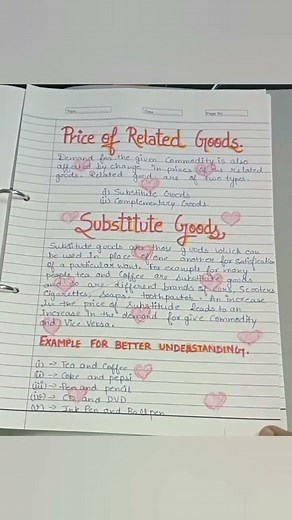 Date
Page No.
Price of Related Goods.
Demand for the given Commodity is also
affected by change in prices of the related
goods. Related goods are of two types:
i) Substitute Goods
ii) Complementary Goods.
Substitute Goods,
Substitute goods are those goods which can
be used in place of one another for satisfication
of a particular want. For example for many
people tea and coffee are substitute goods
and so are different brands of Scooters
Cigarettes, Soaps, toothpaste. An increase
in the price of Substitute leads to an
increase in the demand for give commodity
and Vice Versa.
EXAMPLE FOR BETTER UNDERSTANDING.
(i) → Tea and Coffee
(ii) → Coke and pepsi
(iii) → Pen and pencil
(iv) → CD and DVD
(v) → Ink Pen and Ball pen